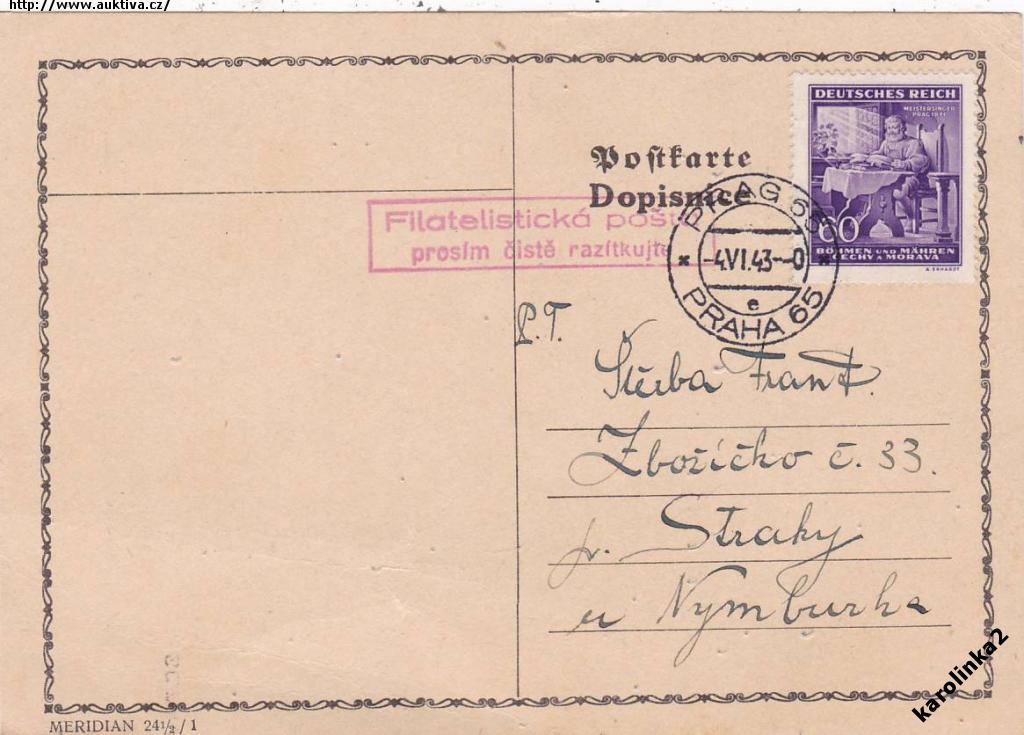 http://www.auktiva.cz/
DEUTSCHES REICH
MEISTERSINGER
PRAG 1971
60
BÖHMEN UND MÄHREN
ČECHY A MORAVA
A. ERHARDT
Postkarte
Dopisnice
Filatelistická pošta
prosím čistě razítkujte
PRAG 65
-4.VI.43--0
e
PRAHA 65
P.T.
Štěrba Frant
Zbožíčko č. 33.
p. Straky
u Nymburka
MERIDIAN 24½/1
karolinka2